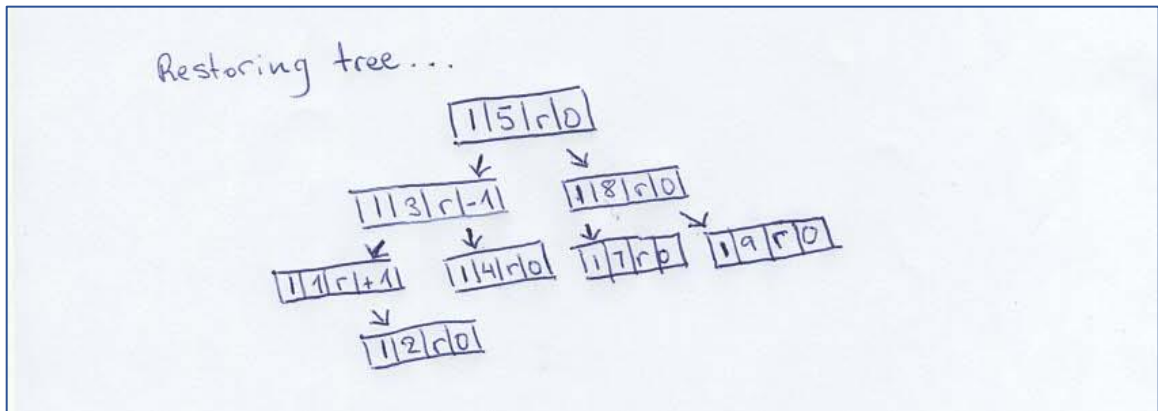 Restoring tree...
l|5|r|0
l|3|r|-1
l|8|r|0
l|1|r|+1
l|4|r|0
l|7|r|0
l|9|r|0
l|2|r|0